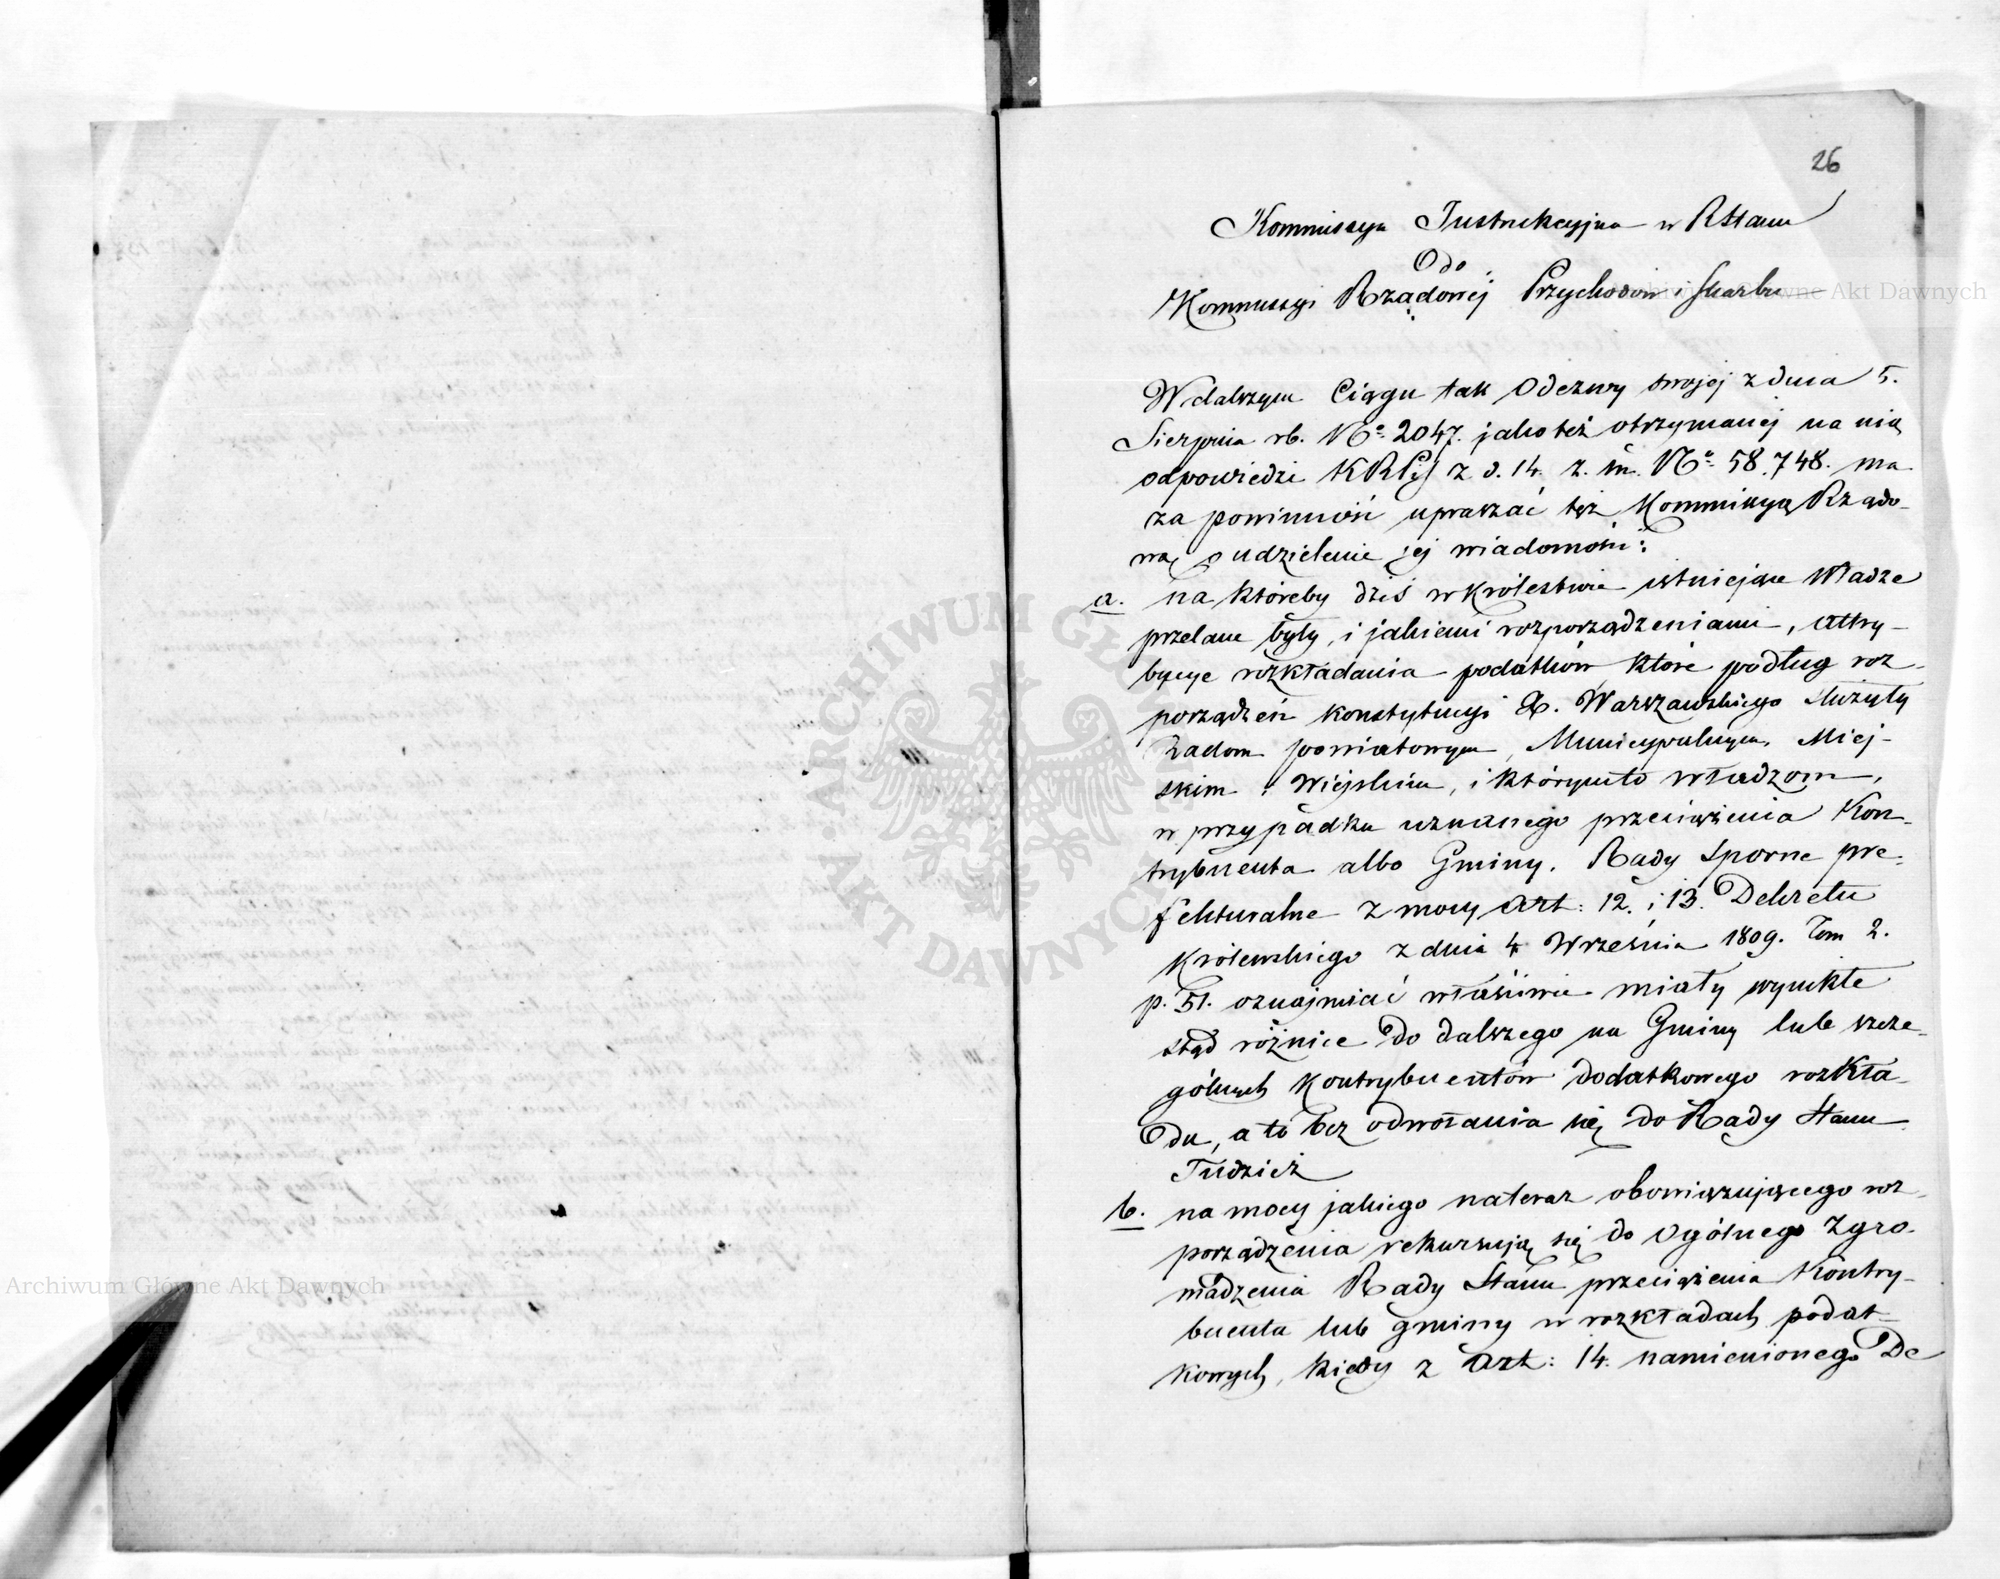 26
Kommissya Instrukcyjna w RStanu
Do
Kommissyi Rządowéj Przychodów i Skarbu
W dalszym Ciągu tak Odezwy swojéj z dnia 5.
Sierpnia rb. No: 2047. jako też otrzymanéj na nią
odpowiedzi KRPiS z d. 14. z. m. No: 58,748. ma
za powinność upraszać też Kommissyą Rządo-
wą o udzielenie jéj wiadomości:
a. na któreby dziś w Królestwie istniejące Władze
przelane były, i jakiemi rozporządzeniami, attry-
bucye rozkładania podatków które podług roz-
porządzeń konstytucyi X. Warszawskiego służyły
Radom powiatowym, Municypalnym, Miej-
skim i Wiejskim, i którymto władzom,
w przypadku uznanego przeciążenia Kon-
trybuenta albo Gminy, Rady Sporne pre-
fekturalne z mocy Art: 12. i 13. Dekretu
Królewskiego z dnia 4 Września 1809. Tom 2.
p. 51. oznajmiać właściwie miały wynikłe
stąd różnice do dalszego na Gminy lub szcze-
gólnych kontrybuentów dodatkowego rozkła-
du, a to bez odwołania się do Rady Stanu
Tudzież
b. na mocy jakiego nateraz obowiązującego roz-
porządzenia rekursują się do Ogólnego Zgro-
madzenia Rady Stanu przeciążenia Kontry-
buenta lub gminy w rozkładach podat-
kowych, kiedy z Art: 14. namienionego De
ARCHIWUM GŁÓWNE
AKT DAWNYCH
Archiwum Główne Akt Dawnych
Archiwum Główne Akt Dawnych